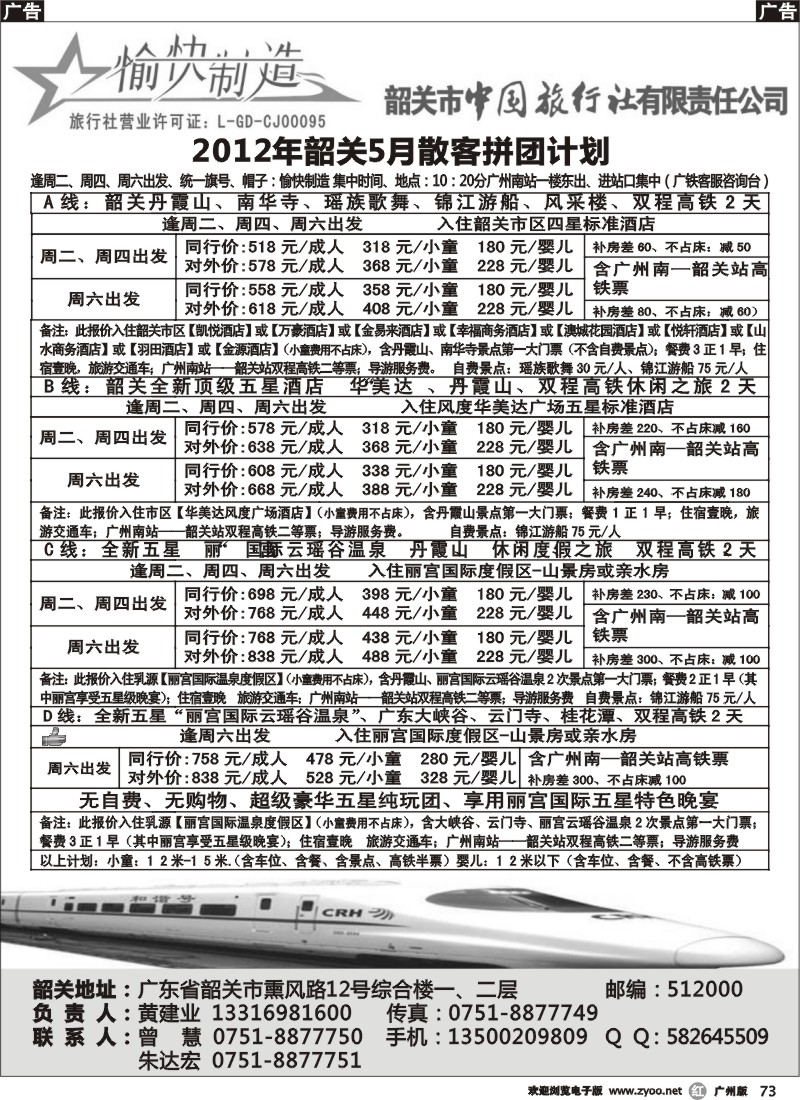 广告 广告
愉快制造
旅行社营业许可证：L-GD-CJ00095
韶关市中国旅行社有限责任公司
2012年韶关5月散客拼团计划
逢周二、周四、周六出发、统一旗号、帽子：愉快制造 集中时间、地点：10：20分广州南站一楼东出、进站口集中（广铁客服咨询台）
A 线：韶关丹霞山、南华寺、瑶族歌舞、锦江游船、风采楼、双程高铁 2 天
逢周二、周四、周六出发 入住韶关市区四星标准酒店
周二、周四出发 同行价:518 元/成人 318 元/小童 180 元/婴儿 补房差 60、不占床：减 50
对外价:578 元/成人 368 元/小童 228 元/婴儿 含广州南—韶关站高铁票
周六出发 同行价:558 元/成人 358 元/小童 180 元/婴儿
对外价:618 元/成人 408 元/小童 228 元/婴儿 补房差 80、不占床：减 60）
备注：此报价入住韶关市区【凯悦酒店】或【万豪酒店】或【金易来酒店】或【幸福商务酒店】或【澳城花园酒店】或【悦轩酒店】或【山
水商务酒店】或【羽田酒店】或【金源酒店】（小童费用不占床），含丹霞山、南华寺景点第一大门票（不含自费景点）；餐费 3 正 1 早；住
宿壹晚，旅游交通车；广州南站——韶关站双程高铁二等票；导游服务费。 自费景点：瑶族歌舞 30 元/人、锦江游船 75 元/人
B 线：韶关全新顶级五星酒店 华美达 、丹霞山、双程高铁休闲之旅 2 天
逢周二、周四、周六出发 入住风度华美达广场五星标准酒店
周二、周四出发 同行价:578 元/成人 318 元/小童 180 元/婴儿 补房差 220、不占床减 160
对外价:638 元/成人 368 元/小童 228 元/婴儿 含广州南—韶关站高铁票
周六出发 同行价:608 元/成人 338 元/小童 180 元/婴儿
对外价:668 元/成人 388 元/小童 228 元/婴儿 补房差 240、不占床减 180
备注：此报价入住市区【华美达风度广场酒店】（小童费用不占床），含丹霞山景点第一大门票；餐费 1 正 1 早；住宿壹晚，旅
游交通车；广州南站——韶关站双程高铁二等票；导游服务费。 自费景点：锦江游船 75 元/人
C 线：全新五星 丽 国际云瑶谷温泉 丹霞山 休闲度假之旅 双程高铁 2 天
逢周二、周四、周六出发 入住丽宫国际度假区-山景房或亲水房
周二、周四出发 同行价:698 元/成人 398 元/小童 180 元/婴儿 补房差 230、不占床：减 100
对外价:768 元/成人 448 元/小童 228 元/婴儿 含广州南—韶关站高铁票
周六出发 同行价:768 元/成人 438 元/小童 180 元/婴儿
对外价:838 元/成人 488 元/小童 228 元/婴儿 补房差 300、不占床：减 100
备注：此报价入住乳源【丽宫国际温泉度假区】（小童费用不占床），含丹霞山、丽宫国际云瑶谷温泉 2 次景点第一大门票；餐费 2 正 1 早（其
中丽宫享受五星级晚宴）；住宿壹晚 旅游交通车；广州南站——韶关站双程高铁二等票；导游服务费 自费景点：锦江游船 75 元/人
D 线：全新五星“丽宫国际云瑶谷温泉”、广东大峡谷、云门寺、桂花潭、双程高铁 2 天
逢周六出发 入住丽宫国际度假区-山景房或亲水房
周六出发 同行价:758 元/成人 478 元/小童 280 元/婴儿 含广州南—韶关站高铁票
对外价:838 元/成人 528 元/小童 328 元/婴儿 补房差 300、不占床减 100
无自费、无购物、超级豪华五星纯玩团、享用丽宫国际五星特色晚宴
备注：此报价入住乳源【丽宫国际温泉度假区】（小童费用不占床），含大峡谷、云门寺、丽宫云瑶谷温泉 2 次景点第一大门票；
餐费 3 正 1 早（其中丽宫享受五星级晚宴）；住宿壹晚 旅游交通车；广州南站——韶关站双程高铁二等票；导游服务费
以上计划：小童：1 2 米-1 5 米.（含车位、含餐、含景点、高铁半票）婴儿：1 2 米以下（含车位、含餐、不含高铁票）
和谐号
CRH
韶关地址：广东省韶关市熏风路12号综合楼一、二层 邮编：512000
负 责 人：黄建业 13316981600 传真：0751-8877749
联 系 人：曾 慧 0751-8877750 手机：13500209809 Q Q：582645509
朱达宏 0751-8877751
欢迎浏览电子版 www.zyoo.net 红 广州版 73